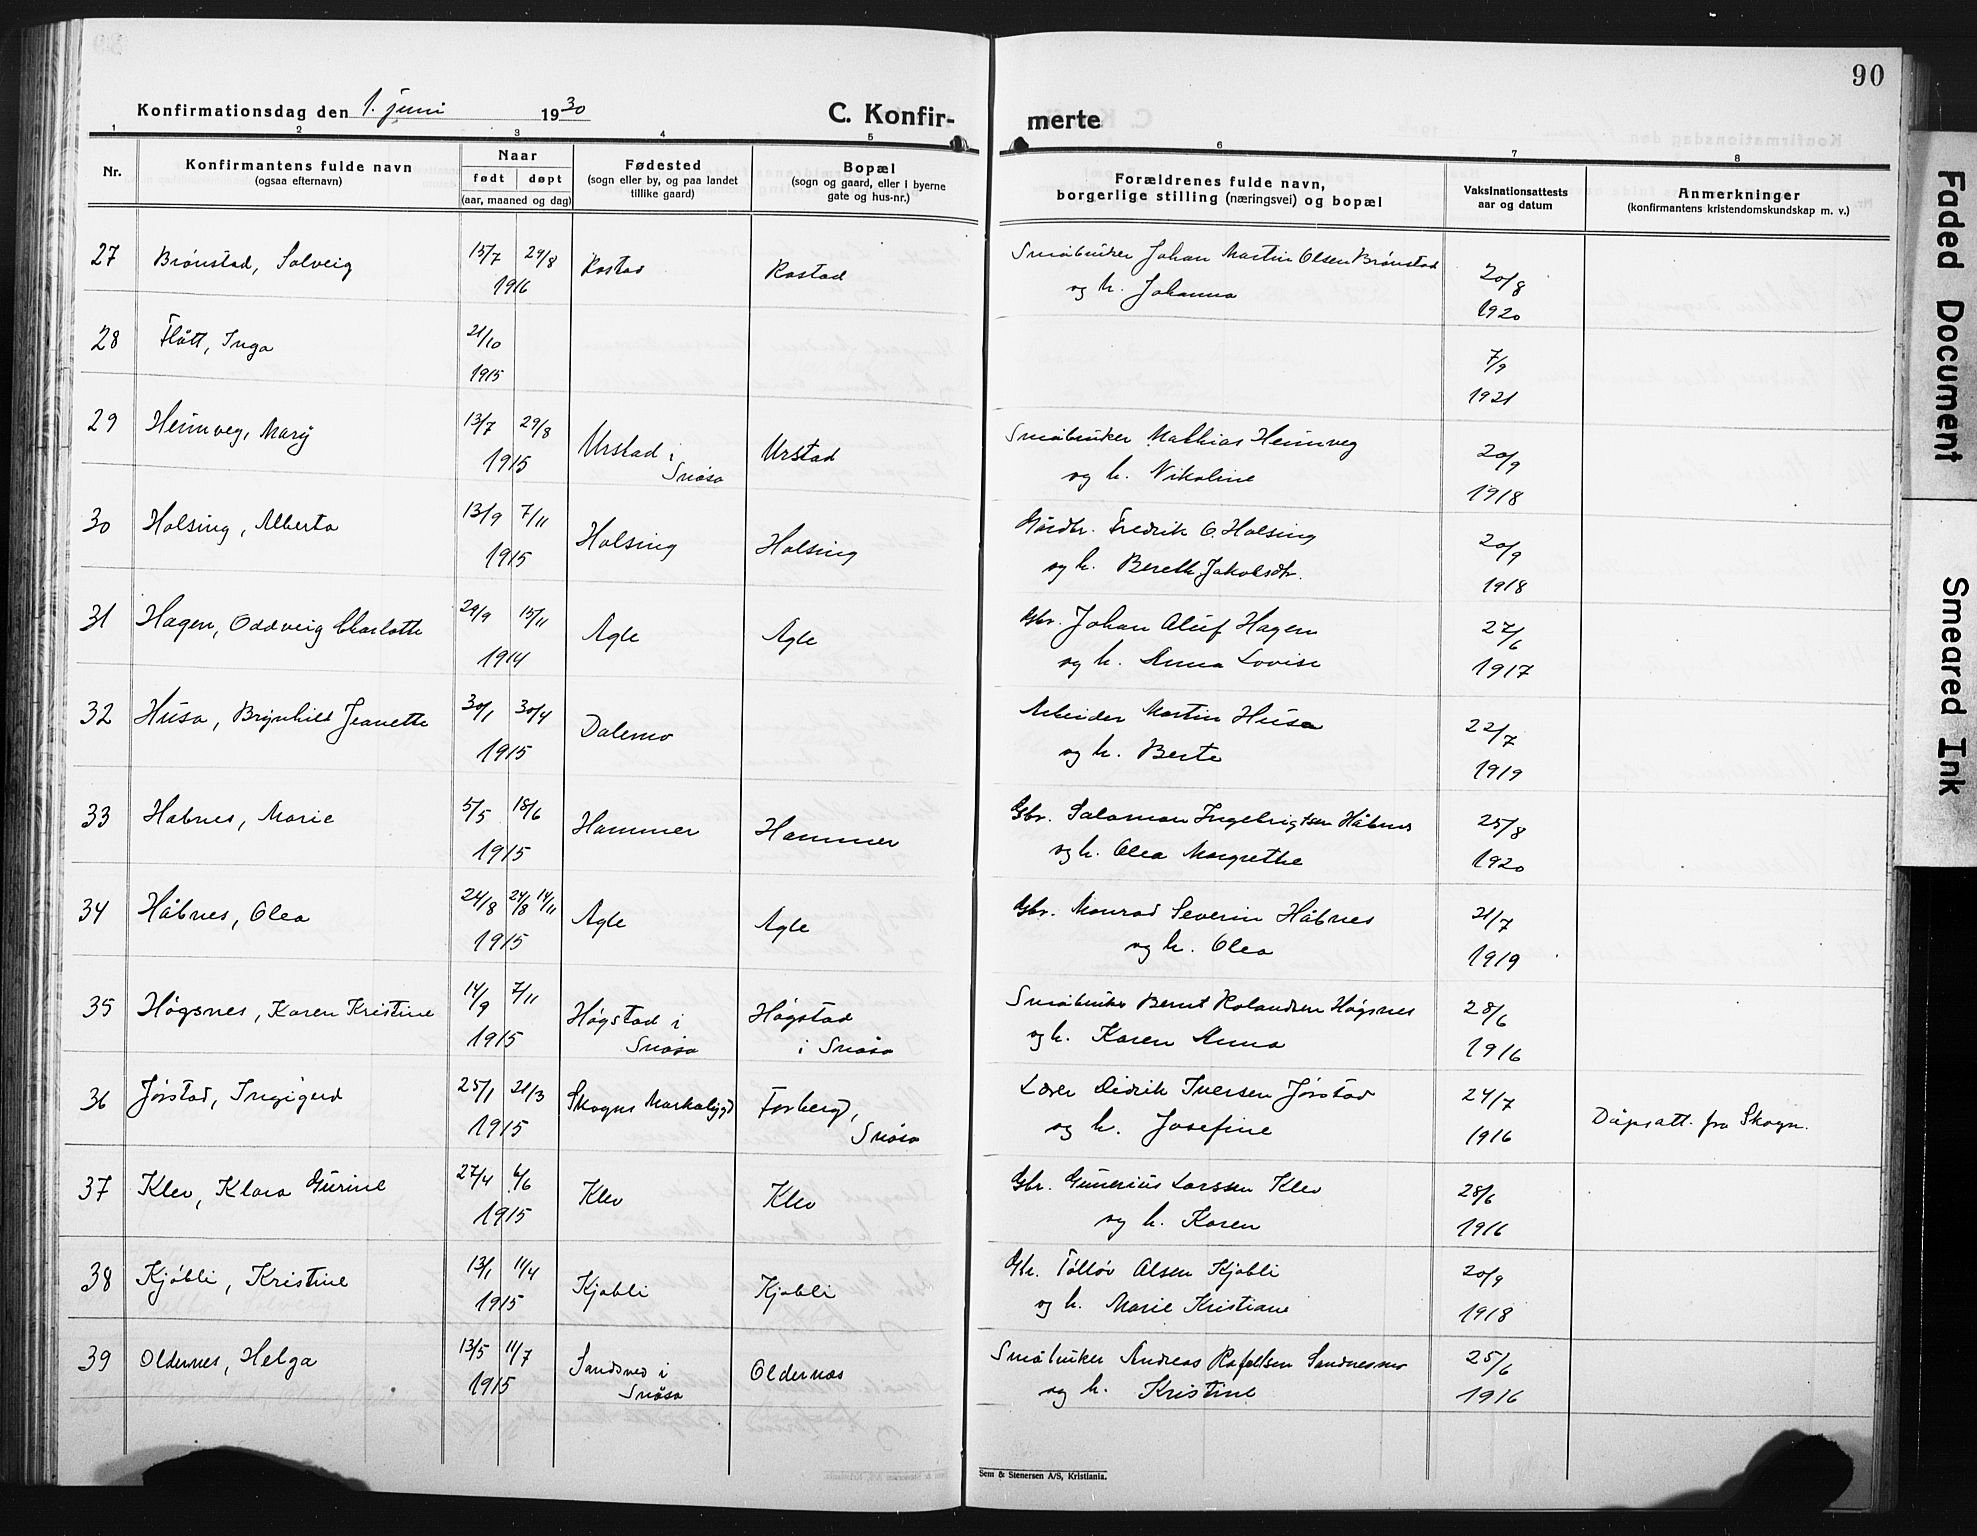 90
Konfirmationsdag den 1. juni 1930
C. Konfir-
merte
1 2 3 4 5 6 7 8
Nr.
Konfirmantens fulde navn
(ogsaa efternavn)
Naar
født døpt
(aar, maaned og dag)
Fødested
(sogn eller by, og paa landet
tillike gaard)
Bopæl
(sogn og gaard, eller i byerne
gate og hus-nr.)
Forældrenes fulde navn,
borgerlige stilling (næringsvei) og bopæl
Vaksinationsattests
aar og datum
Anmerkninger
(konfirmantens kristendomskundskap m. v.)
27 Brønstad, Solveig 15/7 29/8 Rostad Rostad Småbruker Johan Martin Olsen Brønstad 20/8
1916 og h. Johanna 1920
28 Flått, Inga 21/10 7/9
1915 1921
29 Heimveg, Mary 13/7 29/8 Urstad i Urstad Småbruker Mathias Heimveg 20/9
1915 Snåsa og h. Nikoline 1918
30 Holsing, Alberta 13/9 7/11 Holsing Holsing Gårdbr. Fredrik O. Holsing 20/9
1915 og h. Bereth Jakobsdtr. 1918
31 Hagen, Oddveig Charlotte 29/9 15/11 Agle Agle Gbr. Johan Aluf Hagen 27/6
1914 og h. Anna Lovise 1917
32 Husa, Brynhild Jeanette 30/1 30/4 Dalemo Arbeider Martin Husa 22/7
1915 og h. Berte 1919
33 Håbnes, Marie 5/5 18/6 Hammer Hammer Gbr. Salamon Ingebrigtsen Håbnes 25/8
1915 og h. Olea Margrethe 1920
34 Håbnes, Olea 24/8 24/8 14/11 Agle Agle Gbr. Monrad Severin Håbnes 21/7
1915 og h. Olea 1919
35 Høgsnes, Karen Kristine 14/9 7/11 Høgstad i Høgstad Småbruker Bernt Rolandsen Høgsnes 28/6
1915 Snåsa i Snåsa og h. Karen Anna 1916
36 Jørstad, Ingigerd 25/1 21/3 Skogns Markabygd Forberg, Lærer Didrik Iversen Jørstad 24/7
1915 Snåsa og h. Josefine 1916 Dåpsatt. fra Skogn.
37 Klev, Klara Gurine 27/4 6/6 Klev Klev Gbr. Gunerius Larssen Klev 28/6
1915 og h. Karen 1916
38 Kjøbli, Kristine 13/1 11/4 Kjøbli Kjøbli Gbr. Tollov Alsen Kjøbli 20/9
1915 og h. Marie Kristiane 1918
39 Oldernes, Helga 13/5 11/7 Sandsved i Oldernes Småbruker Andreas Rafaelsen Sandnesmo 25/6
1915 Snåsa og h. Kristine 1916
Sem & Stenersen A/S, Kristiania.
Faded Document
Smeared Ink